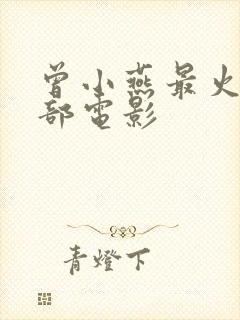 曾小燕最火
部電影
青燈下